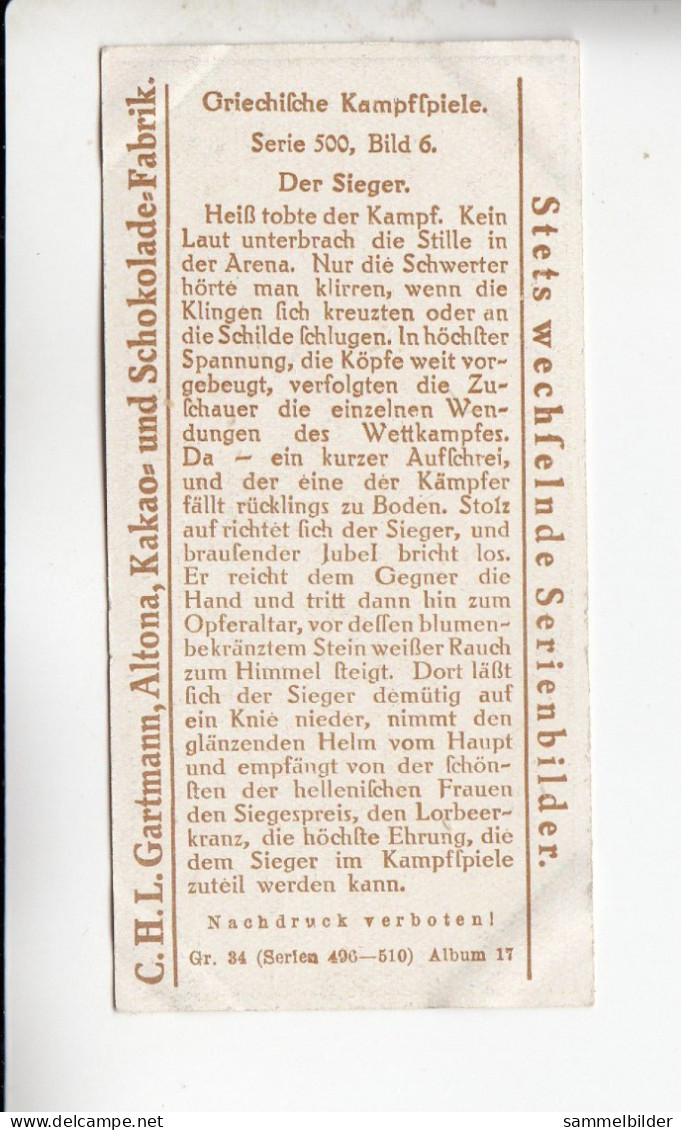 C. H. L. Gartmann, Altona, Kakao- und Schokolade-Fabrik.
Griechiſche Kampfſpiele.
Serie 500, Bild 6.
Der Sieger.
Heiß tobte der Kampf. Kein
Laut unterbrach die Stille in
der Arena. Nur die Schwerter
hörte man klirren, wenn die
Klingen ſich kreuzten oder an
die Schilde ſchlugen. In höchſter
Spannung, die Köpfe weit vor-
gebeugt, verfolgten die Zu-
ſchauer die einzelnen Wen-
dungen des Wettkampfes.
Da — ein kurzer Aufſchrei,
und der eine der Kämpfer
fällt rücklings zu Boden. Stolz
auf richtet ſich der Sieger, und
brauſender Jubel bricht los.
Er reicht dem Gegner die
Hand und tritt dann hin zum
Opferaltar, vor deſſen blumen-
bekränztem Stein weißer Rauch
zum Himmel ſteigt. Dort läßt
ſich der Sieger demütig auf
ein Knie nieder, nimmt den
glänzenden Helm vom Haupt
und empfängt von der ſchön-
ſten der helleniſchen Frauen
den Siegespreis, den Lorbeer-
kranz, die höchſte Ehrung, die
dem Sieger im Kampfſpiele
zuteil werden kann.
Nachdruck verboten!
Gr. 34 (Serien 496—510) Album 17
Stets wechſelnde Serienbilder.
delcampe.net
sammelbilder